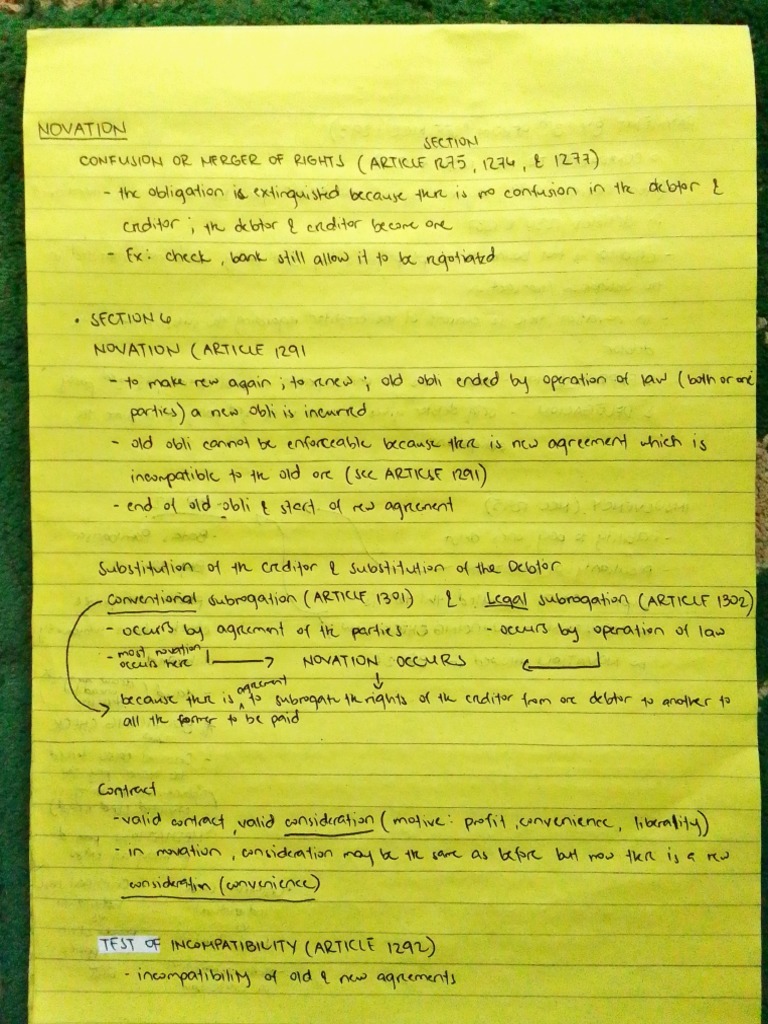 NOVATION
SECTION
CONFUSION OR MERGER OF RIGHTS (ARTICLE 1275, 1276, & 1277)
- the obligation is extinguished because there is no confusion in the debtor &
creditor ; the debtor & creditor become one
- Ex: check, bank still allow it to be negotiated
• SECTION 6
NOVATION (ARTICLE 1291
- to make new again ; to renew ; old obli ended by operation of law (both or one
parties) a new obli is incurred
- old obli cannot be enforceable because there is new agreement which is
incompatible to the old one (see ARTICLE 1291)
- end of old obli & start of new agreement
Substitution of the creditor & substitution of the Debtor
conventional subrogation (ARTICLE 1301) & Legal subrogation (ARTICLE 1302)
- occurs by agreement of the parties - occurs by operation of law
- most novation
occurs here NOVATION OCCURS
agreement
because there is to subrogate the rights of the creditor from one debtor to another to
all the former to be paid
Contract
- valid contract, valid consideration (motive: profit, convenience, liberality)
- in novation, consideration may be the same as before but now there is a new
consideration (convenience)
TEST OF INCOMPATIBILITY (ARTICLE 1292)
- incompatibility of old & new agreements